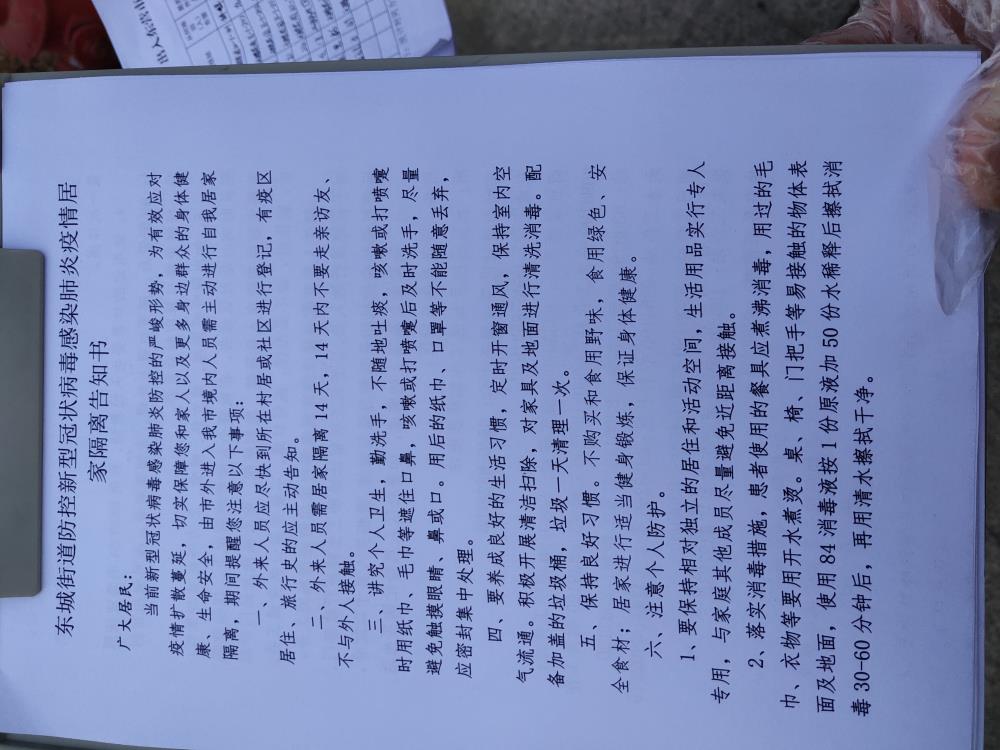 东城街道防控新型冠状病毒感染肺炎疫情居
家隔离告知书
广大居民：
当前新型冠状病毒感染肺炎防控的严峻形势，为有效应对
疫情扩散蔓延，切实保障您和家人以及更多身边群众的身体健
康、生命安全，由市外进入我市境内人员需主动进行自我居家
隔离，期间提醒您注意以下事项：
一、外来人员应尽快到所在村居或社区进行登记，有疫区
居住、旅行史的应主动告知。
二、外来人员需居家隔离 14 天，14 天内不要走亲访友、
不与外人接触。
三、讲究个人卫生，勤洗手，不随地吐痰，咳嗽或打喷嚏
时用纸巾、毛巾等遮住口鼻，咳嗽或打喷嚏后及时洗手，尽量
避免触摸眼睛、鼻或口。用后的纸巾、口罩等不能随意丢弃，
应密封集中处理。
四、要养成良好的生活习惯，定时开窗通风，保持室内空
气流通。积极开展清洁扫除，对家具及地面进行清洗消毒。配
备加盖的垃圾桶，垃圾一天清理一次。
五、保持良好习惯。不购买和食用野味，食用绿色、安
全食材；居家进行适当健身锻炼，保证身体健康。
六、注意个人防护。
1、要保持相对独立的居住和活动空间，生活用品实行专人
专用，与家庭其他成员尽量避免近距离接触。
2、落实消毒措施，患者使用的餐具应煮沸消毒，用过的毛
巾、衣物等要用开水煮烫。桌、椅、门把手等易接触的物体表
面及地面，使用 84 消毒液按 1 份原液加 50 份水稀释后擦拭消
毒 30-60 分钟后，再用清水擦拭干净。